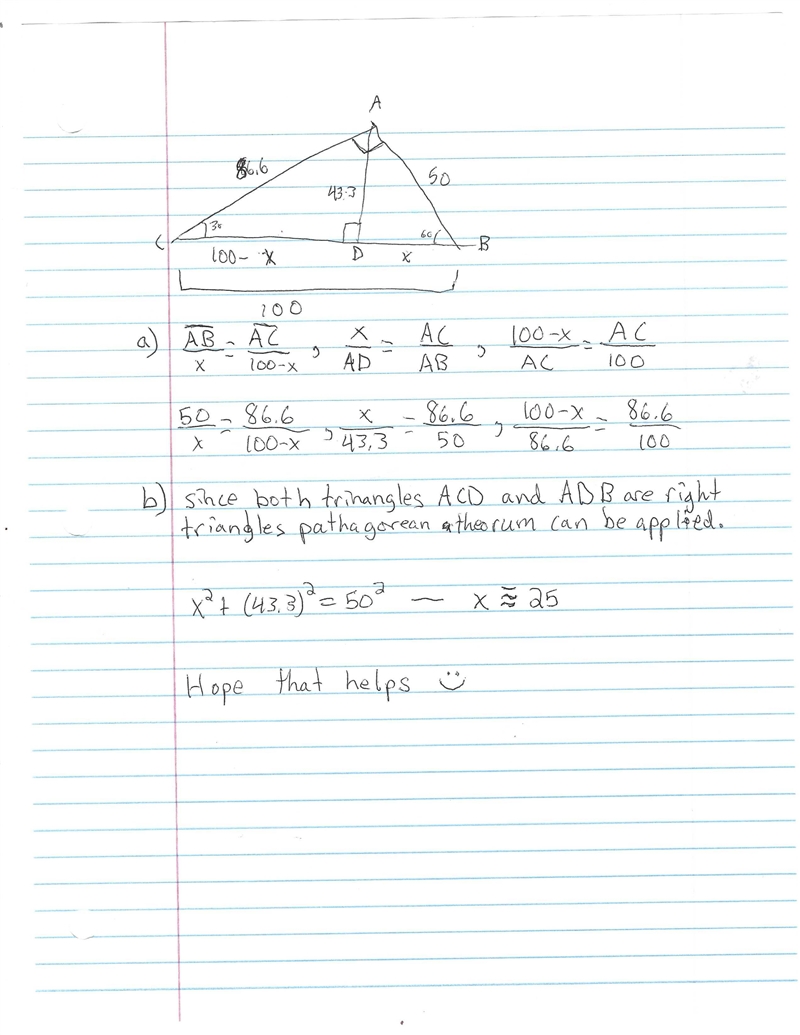 A
86.6
50
43.3
30
60
C
D
B
100-x
x
100
a) AB/x = AC/100-x , x/AD = AC/AB , 100-x/AC = AC/100
50/x = 86.6/100-x , x/43.3 = 86.6/50 , 100-x/86.6 = 86.6/100
b) since both trinangles ACD and ADB are right
triangles pathagorean theorum can be applied.
x² + (43.3)² = 50² — x ≈ 25
Hope that helps